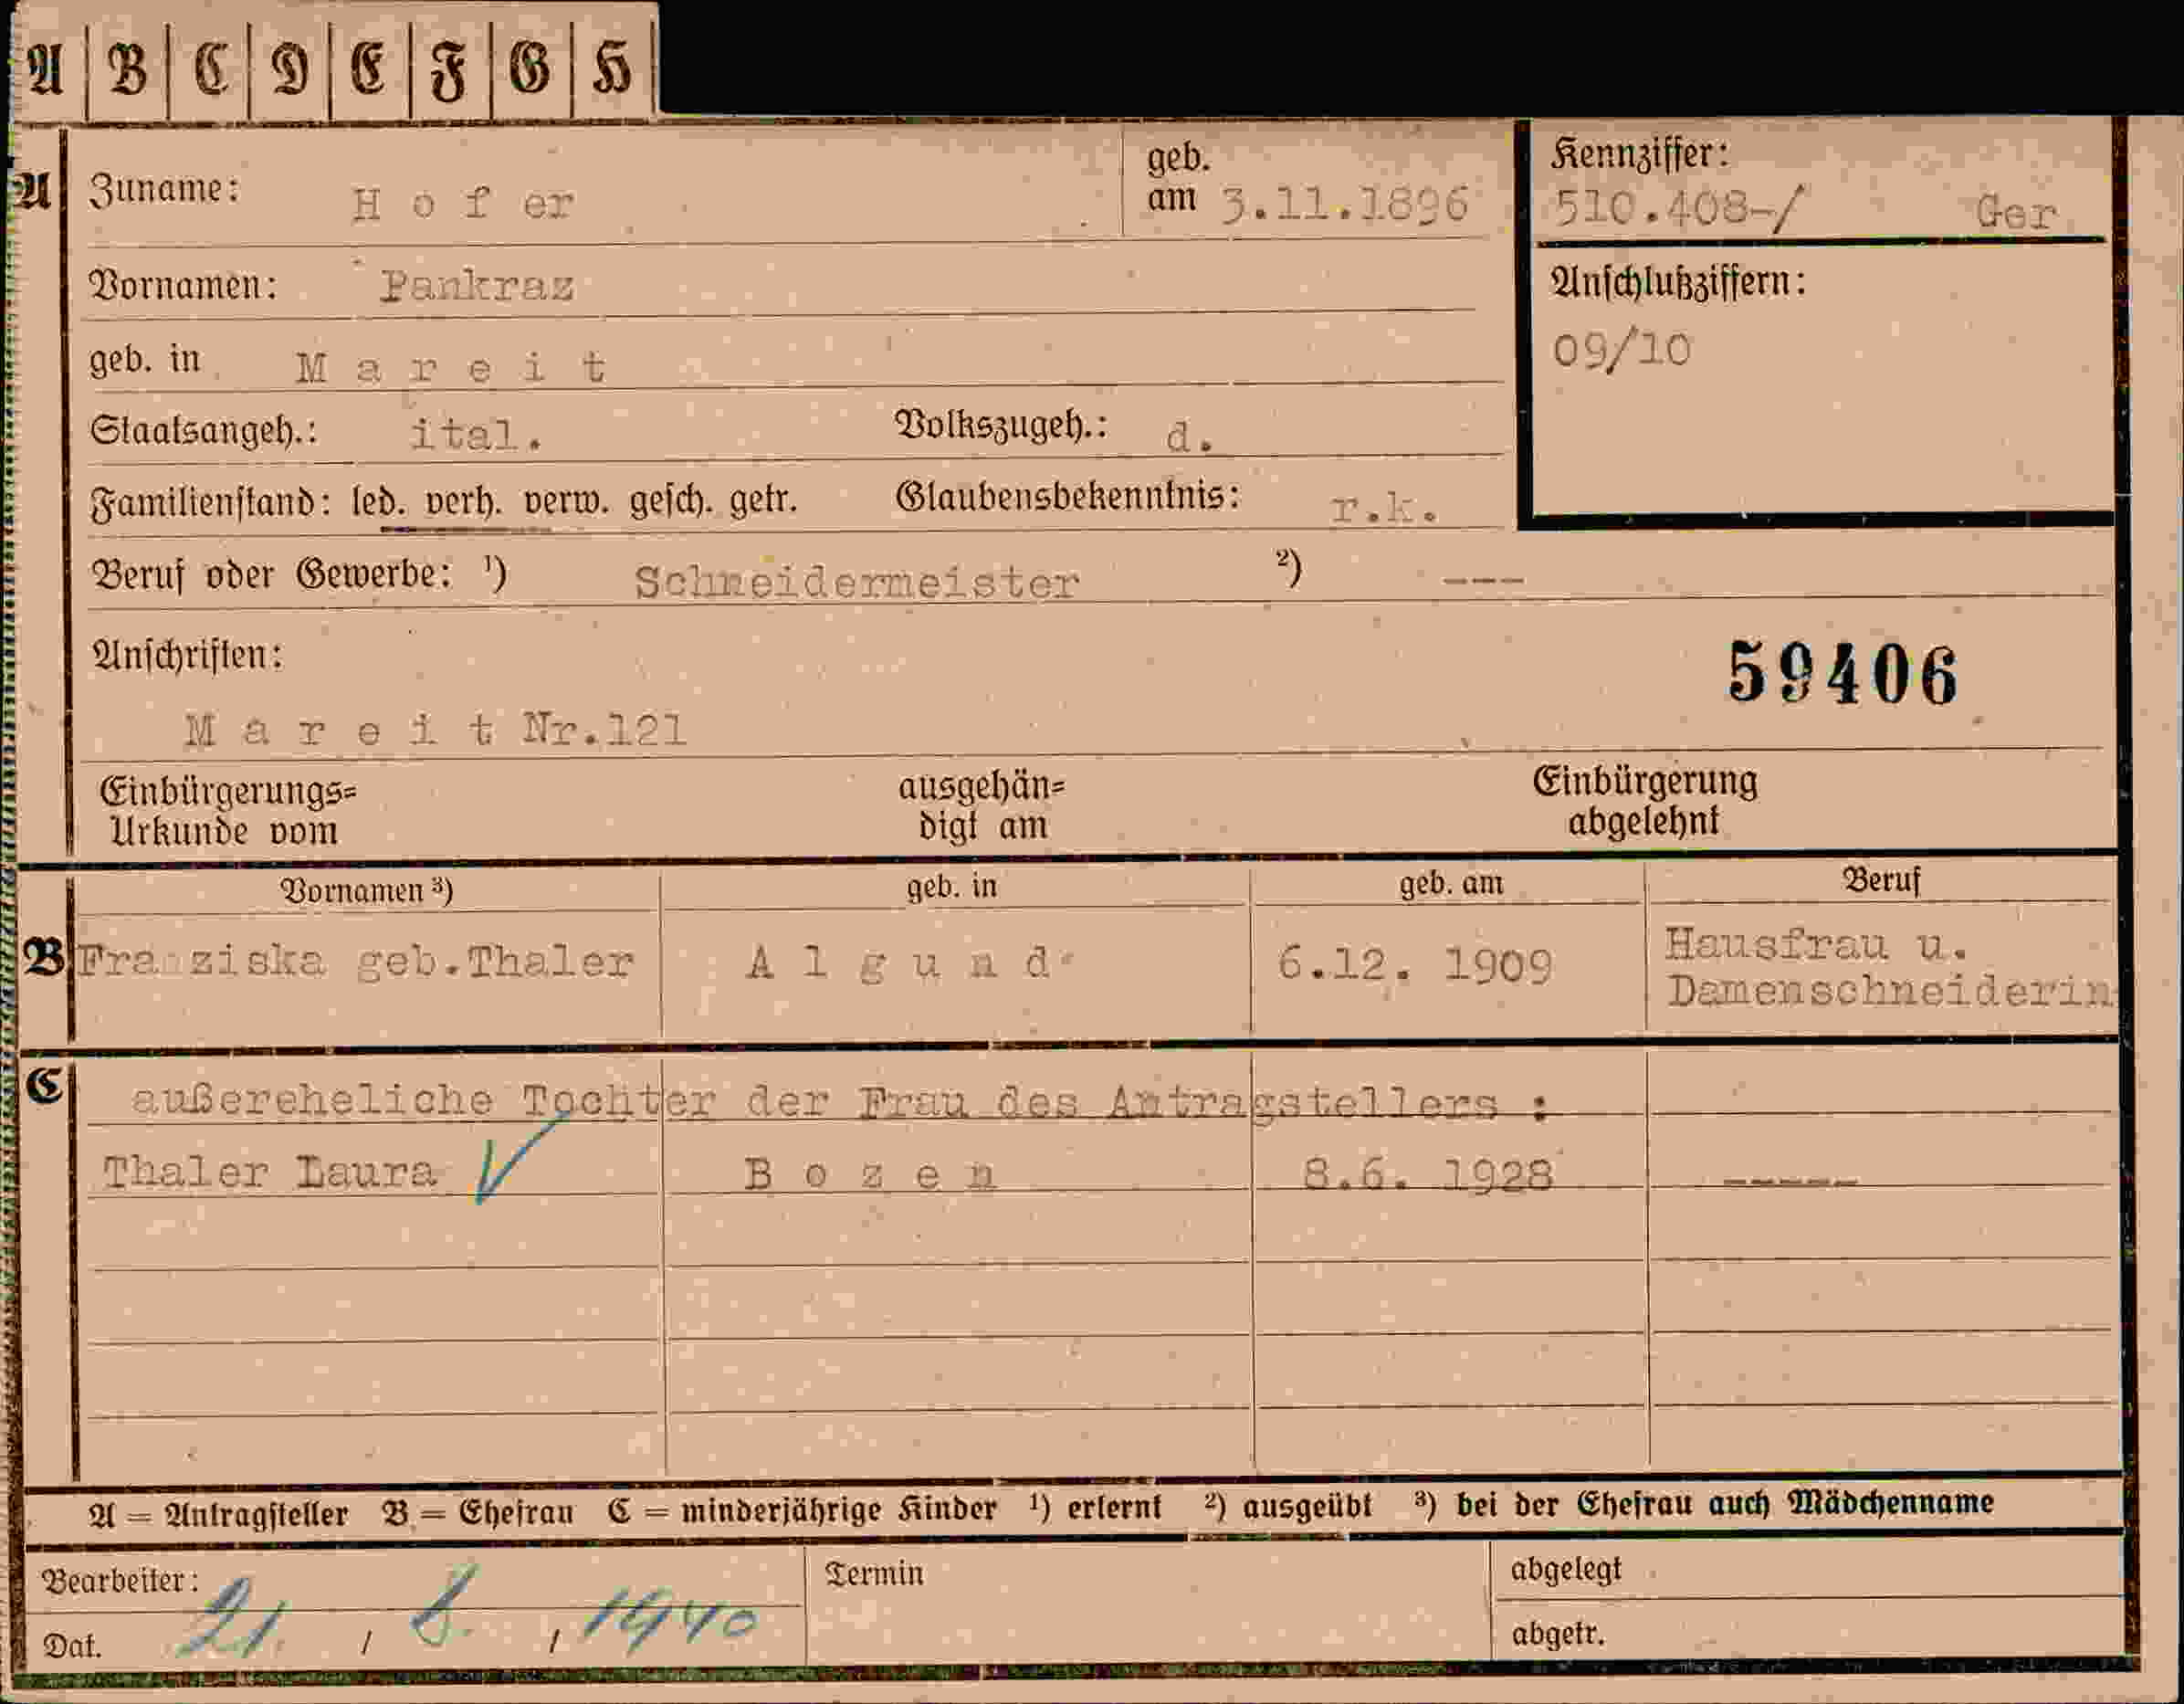 A B C D E F G H
A Zuname: H o f er geb. am 3.11.1896
Kennziffer:
510.408-/ Ger
Vornamen: Pankraz
Anschlußziffern:
09/10
geb. in M a r e i t
Staatsangeh.: ital. Volkszugeh.: d.
Familienstand: led. verh. verw. gesch. getr. Glaubensbekenntnis: r.k.
Beruf oder Gewerbe: ¹) Schneidermeister ²) ---
Anschriften:
59406
M a r e i t Nr.121
Einbürgerungs= ausgehän= Einbürgerung
Urkunde vom digt am abgelehnt
Vornamen ³) geb. in geb. am Beruf
B Franziska geb.Thaler A l g u n d 6.12. 1909 Hausfrau u.
Damenschneiderin
C außereheliche Tochter der Frau des Antragstellers :
Thaler Laura B o z e n 8.6. 1928 -----
A = Antragsteller B = Ehefrau C = minderjährige Kinder ¹) erlernt ²) ausgeübt ³) bei der Ehefrau auch Mädchenname
Bearbeiter: Termin abgelegt
Dat. 21. / 8. / 1940 abgetr.